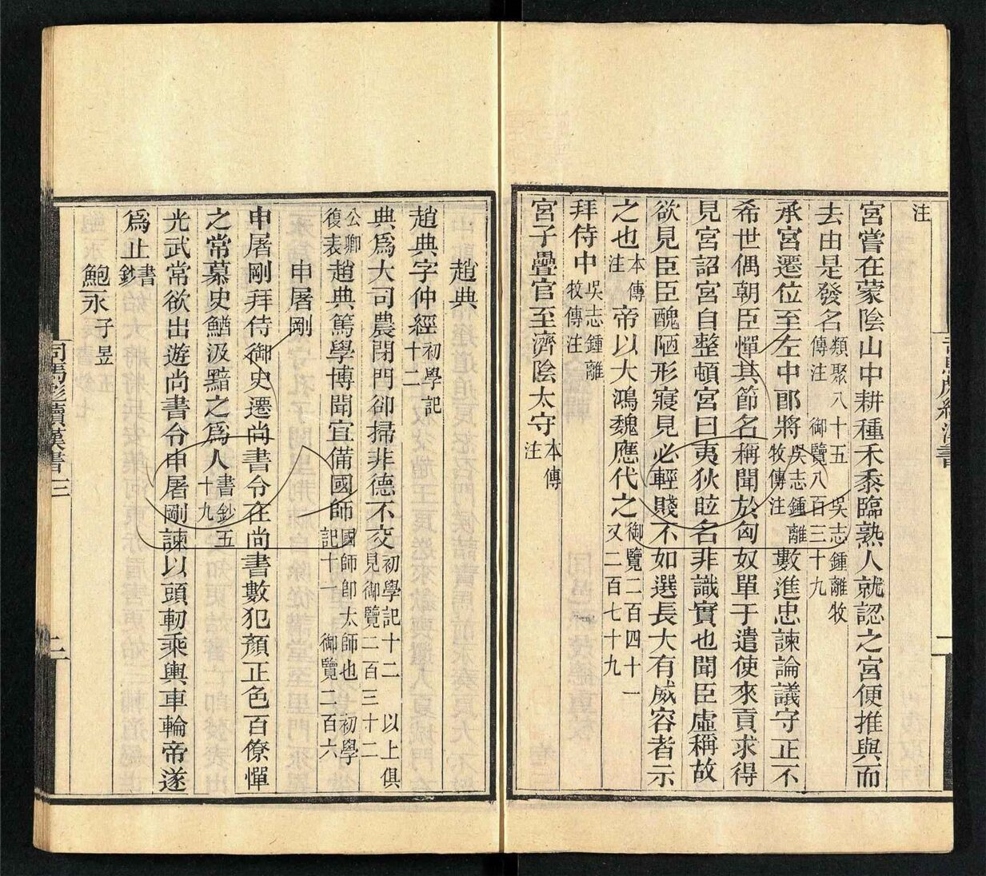 注
宮嘗在蒙陰山中耕種禾黍臨熟人就認之宮便推與而
去由是發名類聚八十五 吳志鍾離牧傳注 御覽八百三十九
承宮遷位至左中郎將吳志鍾離牧傳注數進忠諫論議守正不
希世偶朝臣憚其節名稱聞於匈奴單于遣使來貢求得
見宮詔宮自整頓宮曰夷狄眩名非識實也聞臣虛稱故
欲見臣臣醜陋形寢見必輕賤不如選長大有威容者示
之也本傳注帝以大鴻臚魏應代之御覽二百四十一 又二百七十九
拜侍中吳志鍾離牧傳注
宮子疊官至濟陰太守本傳注
趙典
趙典字仲經初學記十二
典為大司農閉門卻掃非德不交初學記十二 以上俱見御覽二百三十二
公卿復表趙典篤學博聞宜備國師國師即太師也 初學記十一 御覽二百六
申屠剛
申屠剛拜侍御史遷尚書令在尚書數犯顏正色百僚憚
之常慕史鰌汲黯之為人書鈔五十九
光武常欲出遊尚書令申屠剛諫以頭軔乘輿車輪帝遂
為止書鈔
鮑永子昱
司馬彪續漢書三
二